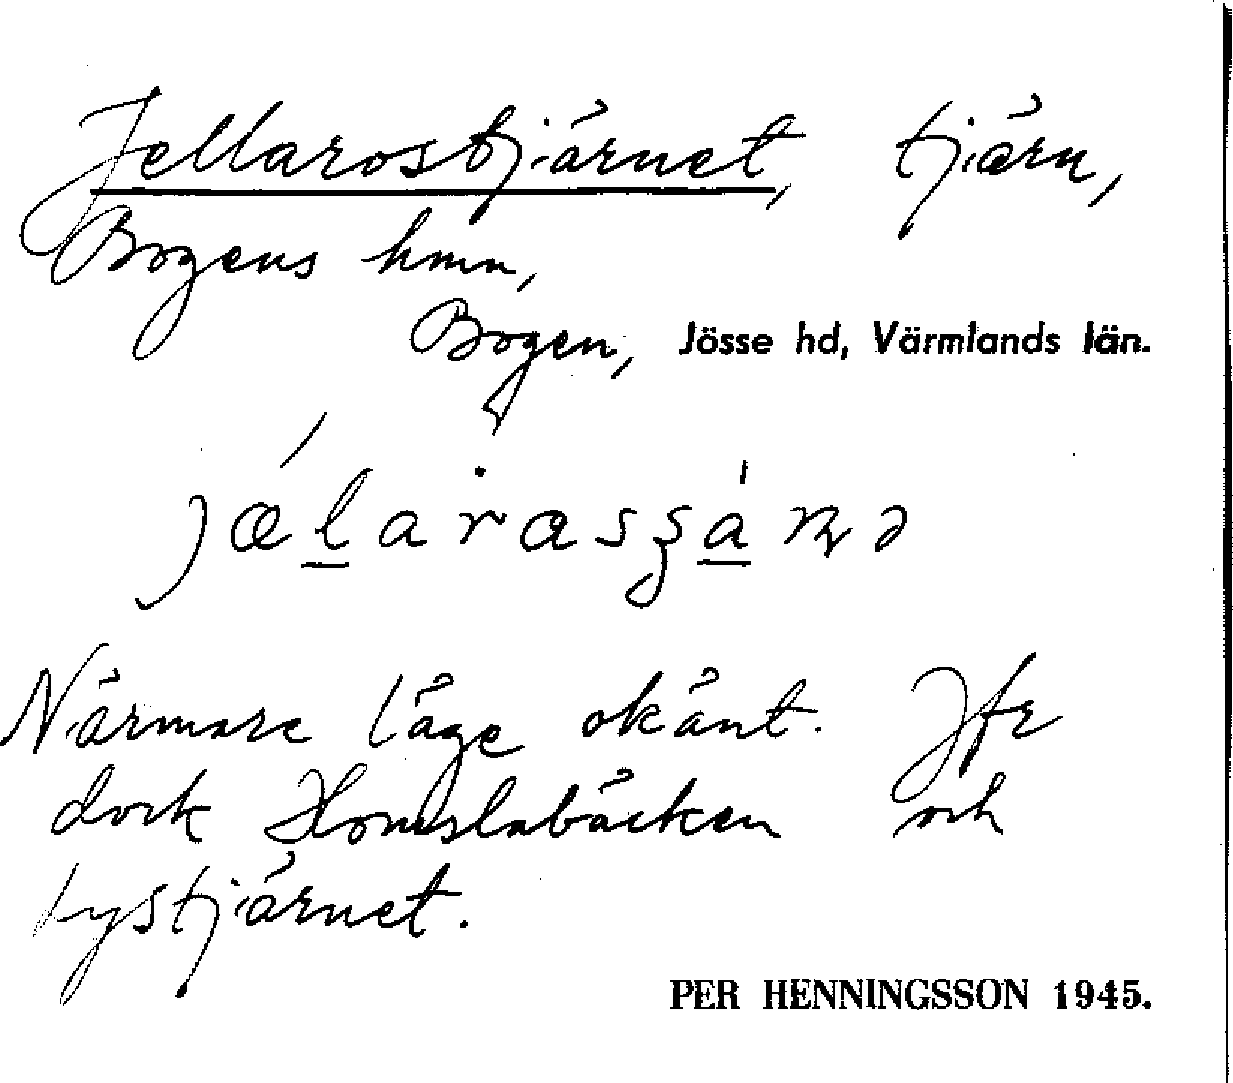 Jellarostjärnet, tjärn,
Bogens hmn,
Bogen, Jösse hd, Värmlands län.
Närmare läge okänt. Jfr
dock och
Lystjärnet.
PER HENNINGSSON 1945.